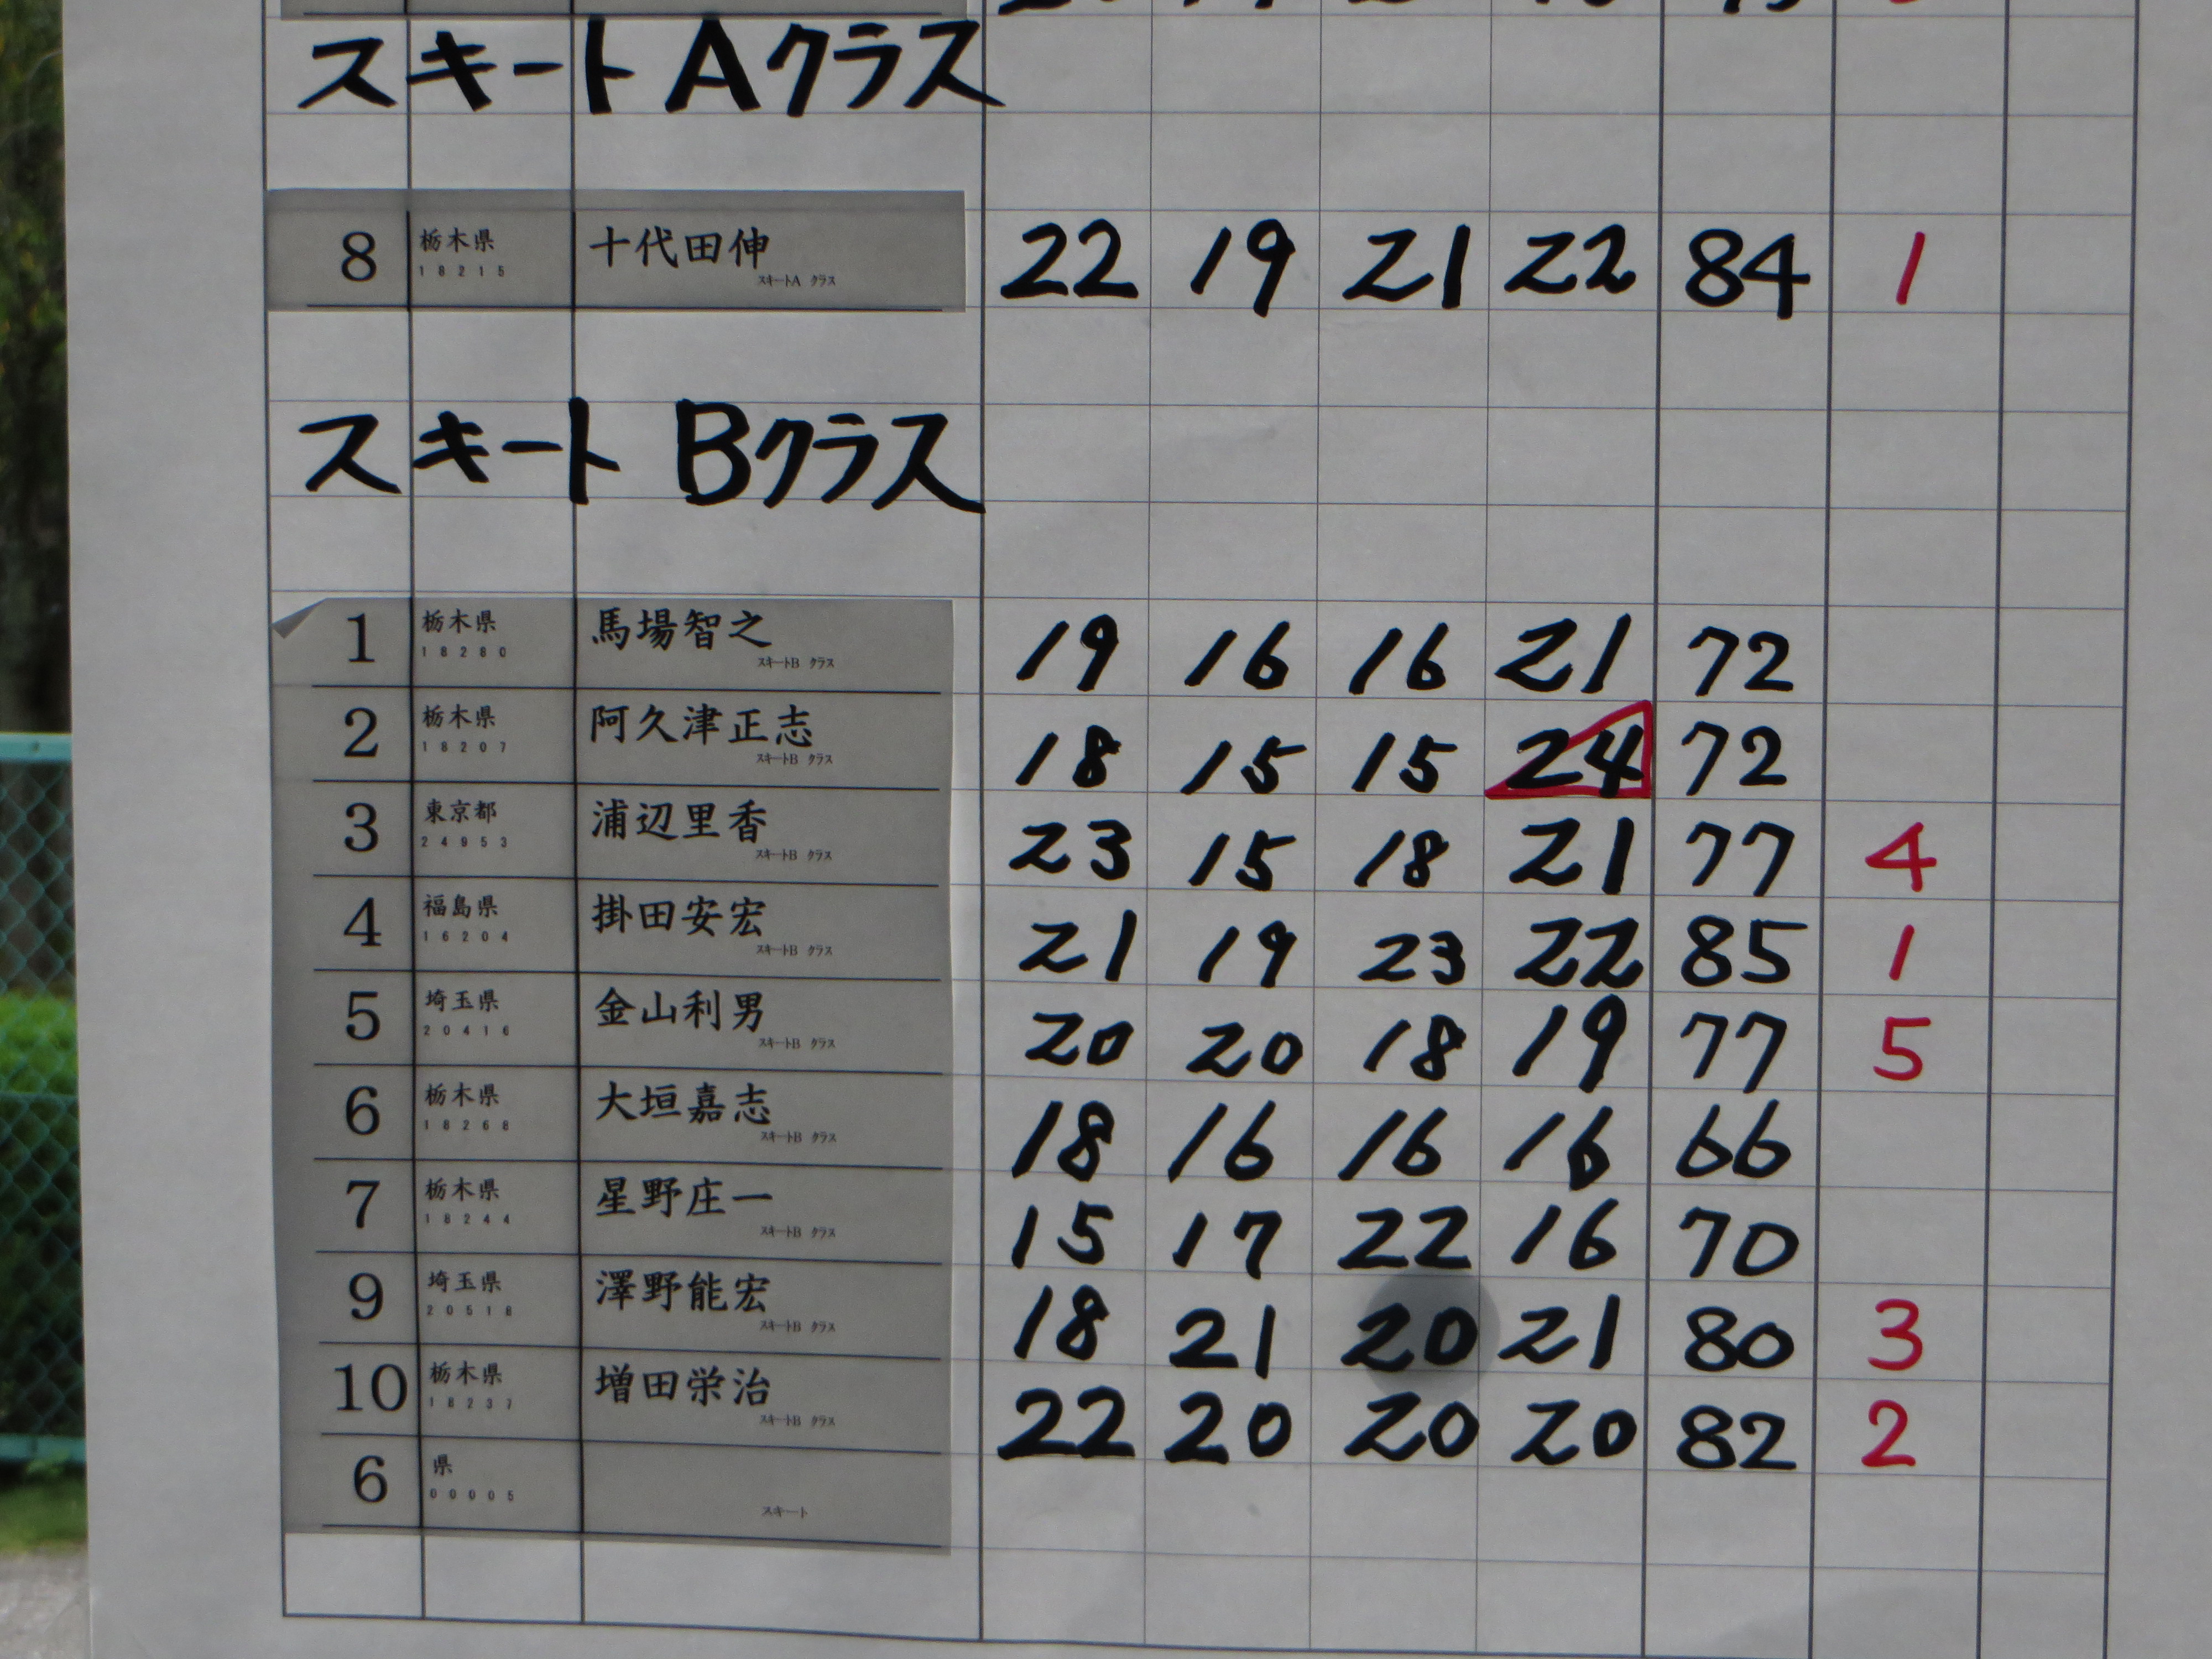 スキート Aクラス
8 栃木県 十代田伸 22 19 21 22 84 1
18215 スキートA クラス
スキート Bクラス
1 栃木県 馬場智之 19 16 16 21 72
18280 スキートB クラス
2 栃木県 阿久津正志 18 15 15 24 72
18207 スキートB クラス
3 東京都 浦辺里香 23 15 18 21 77 4
24953 スキートB クラス
4 福島県 掛田安宏 21 19 23 22 85 1
16204 スキートB クラス
5 埼玉県 金山利男 20 20 18 19 77 5
20416 スキートB クラス
6 栃木県 大垣嘉志 18 16 16 16 66
18268 スキートB クラス
7 栃木県 星野庄一 15 17 22 16 70
18244 スキートB クラス
9 埼玉県 澤野能宏 18 21 20 21 80 3
20518 スキートB クラス
10 栃木県 増田栄治 22 20 20 20 82 2
18237 スキートB クラス
6 県
00005 スキート